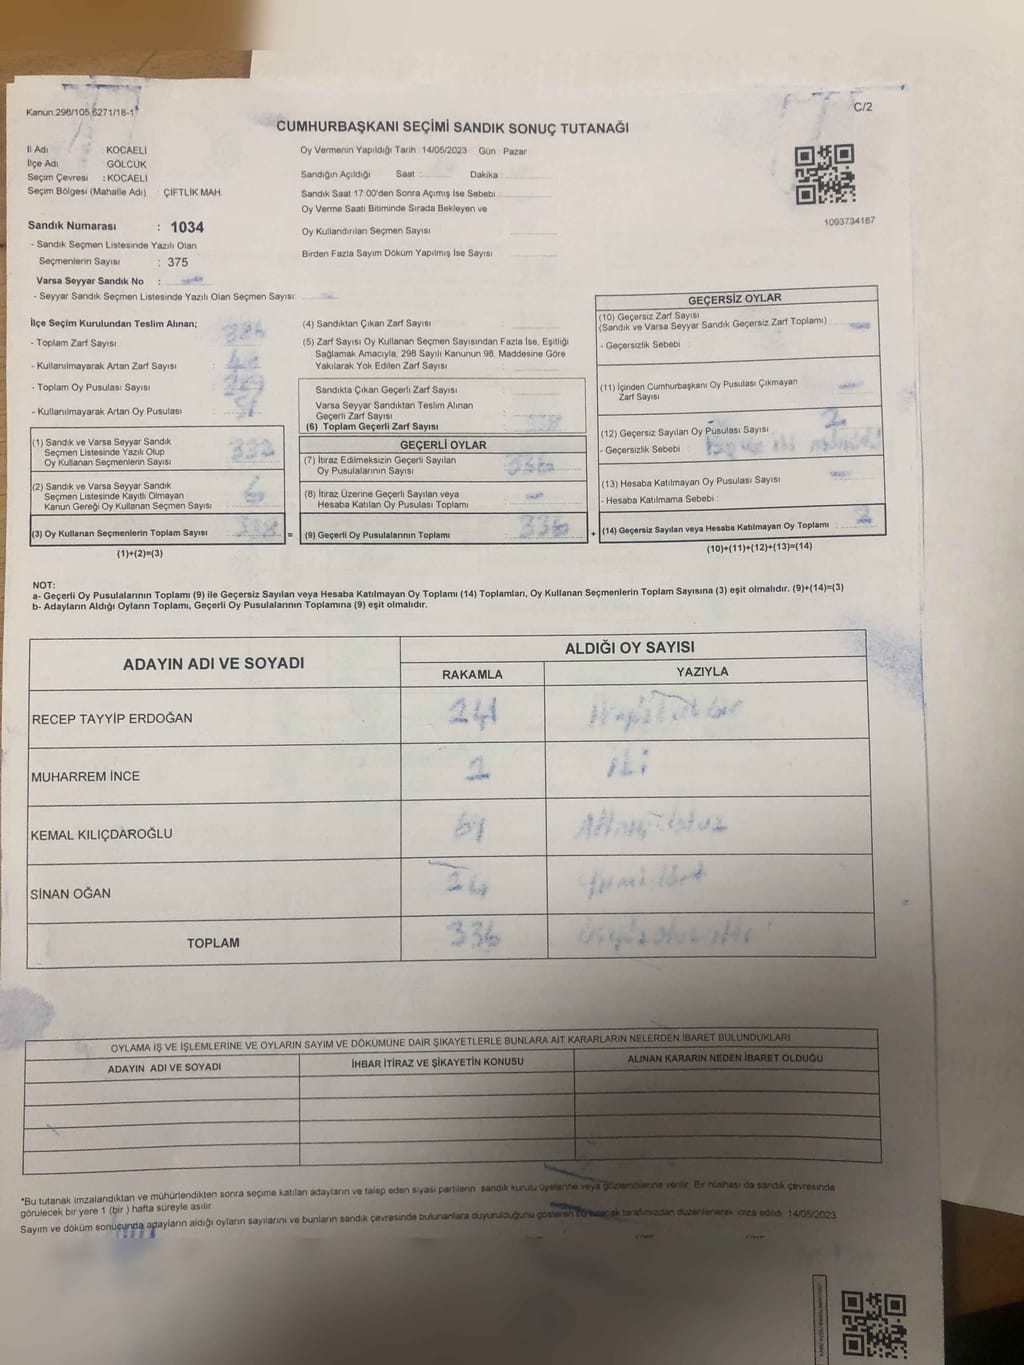 Kanun.298/105.6271/18-1
C/2
CUMHURBAŞKANI SEÇİMİ SANDIK SONUÇ TUTANAĞI
İl Adı KOCAELİ
İlçe Adı GÖLCÜK
Seçim Çevresi : KOCAELİ
Seçim Bölgesi (Mahalle Adı) : ÇİFTLİK MAH.
Oy Vermenin Yapıldığı Tarih 14/05/2023 Gün Pazar
Sandığın Açıldığı Saat Dakika
Sandık Saat 17:00'den Sonra Açımış İse Sebebi
Oy Verme Saati Bitiminde Sırada Bekleyen ve
Oy Kullandırılan Seçmen Sayısı
Birden Fazla Sayım Döküm Yapılmış İse Sayısı
1093734167
Sandık Numarası : 1034
- Sandık Seçmen Listesinde Yazılı Olan
Seçmenlerin Sayısı : 375
Varsa Seyyar Sandık No :
- Seyyar Sandık Seçmen Listesinde Yazılı Olan Seçmen Sayısı:
İlçe Seçim Kurulundan Teslim Alınan;
- Toplam Zarf Sayısı :
- Kullanılmayarak Artan Zarf Sayısı :
- Toplam Oy Pusulası Sayısı :
- Kullanılmayarak Artan Oy Pusulası :
(1) Sandık ve Varsa Seyyar Sandık
Seçmen Listesinde Yazılı Olup
Oy Kullanan Seçmenlerin Sayısı : 332
(2) Sandık ve Varsa Seyyar Sandık
Seçmen Listesinde Kayıtlı Olmayan
Kanun Gereği Oy Kullanan Seçmen Sayısı : 6
(3) Oy Kullanan Seçmenlerin Toplam Sayısı : 338
(1)+(2)=(3)
(4) Sandıktan Çıkan Zarf Sayısı :
(5) Zarf Sayısı Oy Kullanan Seçmen Sayısından Fazla İse, Eşitliği
Sağlamak Amacıyla; 298 Sayılı Kanunun 98. Maddesine Göre
Yakılarak Yok Edilen Zarf Sayısı :
Sandıkta Çıkan Geçerli Zarf Sayısı :
Varsa Seyyar Sandıktan Teslim Alınan
Geçerli Zarf Sayısı :
(6) Toplam Geçerli Zarf Sayısı :
GEÇERLİ OYLAR
(7) İtiraz Edilmeksizin Geçerli Sayılan
Oy Pusulalarının Sayısı : 336
(8) İtiraz Üzerine Geçerli Sayılan veya
Hesaba Katılan Oy Pusulası Toplamı :
= (9) Geçerli Oy Pusulalarının Toplamı : 336
GEÇERSİZ OYLAR
(10) Geçersiz Zarf Sayısı
(Sandık ve Varsa Seyyar Sandık Geçersiz Zarf Toplamı) :
- Geçersizlik Sebebi :
(11) İçinden Cumhurbaşkanı Oy Pusulası Çıkmayan
Zarf Sayısı :
(12) Geçersiz Sayılan Oy Pusulası Sayısı : 2
- Geçersizlik Sebebi :
(13) Hesaba Katılmayan Oy Pusulası Sayısı :
- Hesaba Katılmama Sebebi :
+ (14) Geçersiz Sayılan veya Hesaba Katılmayan Oy Toplamı : 2
(10)+(11)+(12)+(13)=(14)
NOT:
a- Geçerli Oy Pusulalarının Toplamı (9) ile Geçersiz Sayılan veya Hesaba Katılmayan Oy Toplamı (14) Toplamları, Oy Kullanan Seçmenlerin Toplam Sayısına (3) eşit olmalıdır. (9)+(14)=(3)
b- Adayların Aldığı Oyların Toplamı, Geçerli Oy Pusulalarının Toplamına (9) eşit olmalıdır.
ADAYIN ADI VE SOYADI
ALDIĞI OY SAYISI
RAKAMLA YAZIYLA
RECEP TAYYİP ERDOĞAN 241
MUHARREM İNCE 2 iki
KEMAL KILIÇDAROĞLU 69 Altmış dokuz
SİNAN OĞAN 24 Yirmi dört
TOPLAM 336 üçyüz otuz altı
OYLAMA İŞ VE İŞLEMLERİNE VE OYLARIN SAYIM VE DÖKÜMÜNE DAİR ŞİKAYETLERLE BUNLARA AİT KARARLARIN NELERDEN İBARET BULUNDUKLARI
ADAYIN ADI VE SOYADI İHBAR İTİRAZ VE ŞİKAYETİN KONUSU ALINAN KARARIN NEDEN İBARET OLDUĞU
*Bu tutanak imzalandıktan ve mühürlendikten sonra seçime katılan adayların ve talep eden siyasi partilerin sandık kurulu üyelerine veya gözlemcilerine verilir. Bir nüshası da sandık çevresinde
görülecek bir yere 1 (bir ) hafta süreyle asılır.
Sayım ve döküm sonucunda adayların aldığı oyların sayılarını ve bunların sandık çevresinde bulunanlara duyurulduğunu gösteren bu tutanak tarafımızdan düzenlenerek imza edildi. 14/05/2023